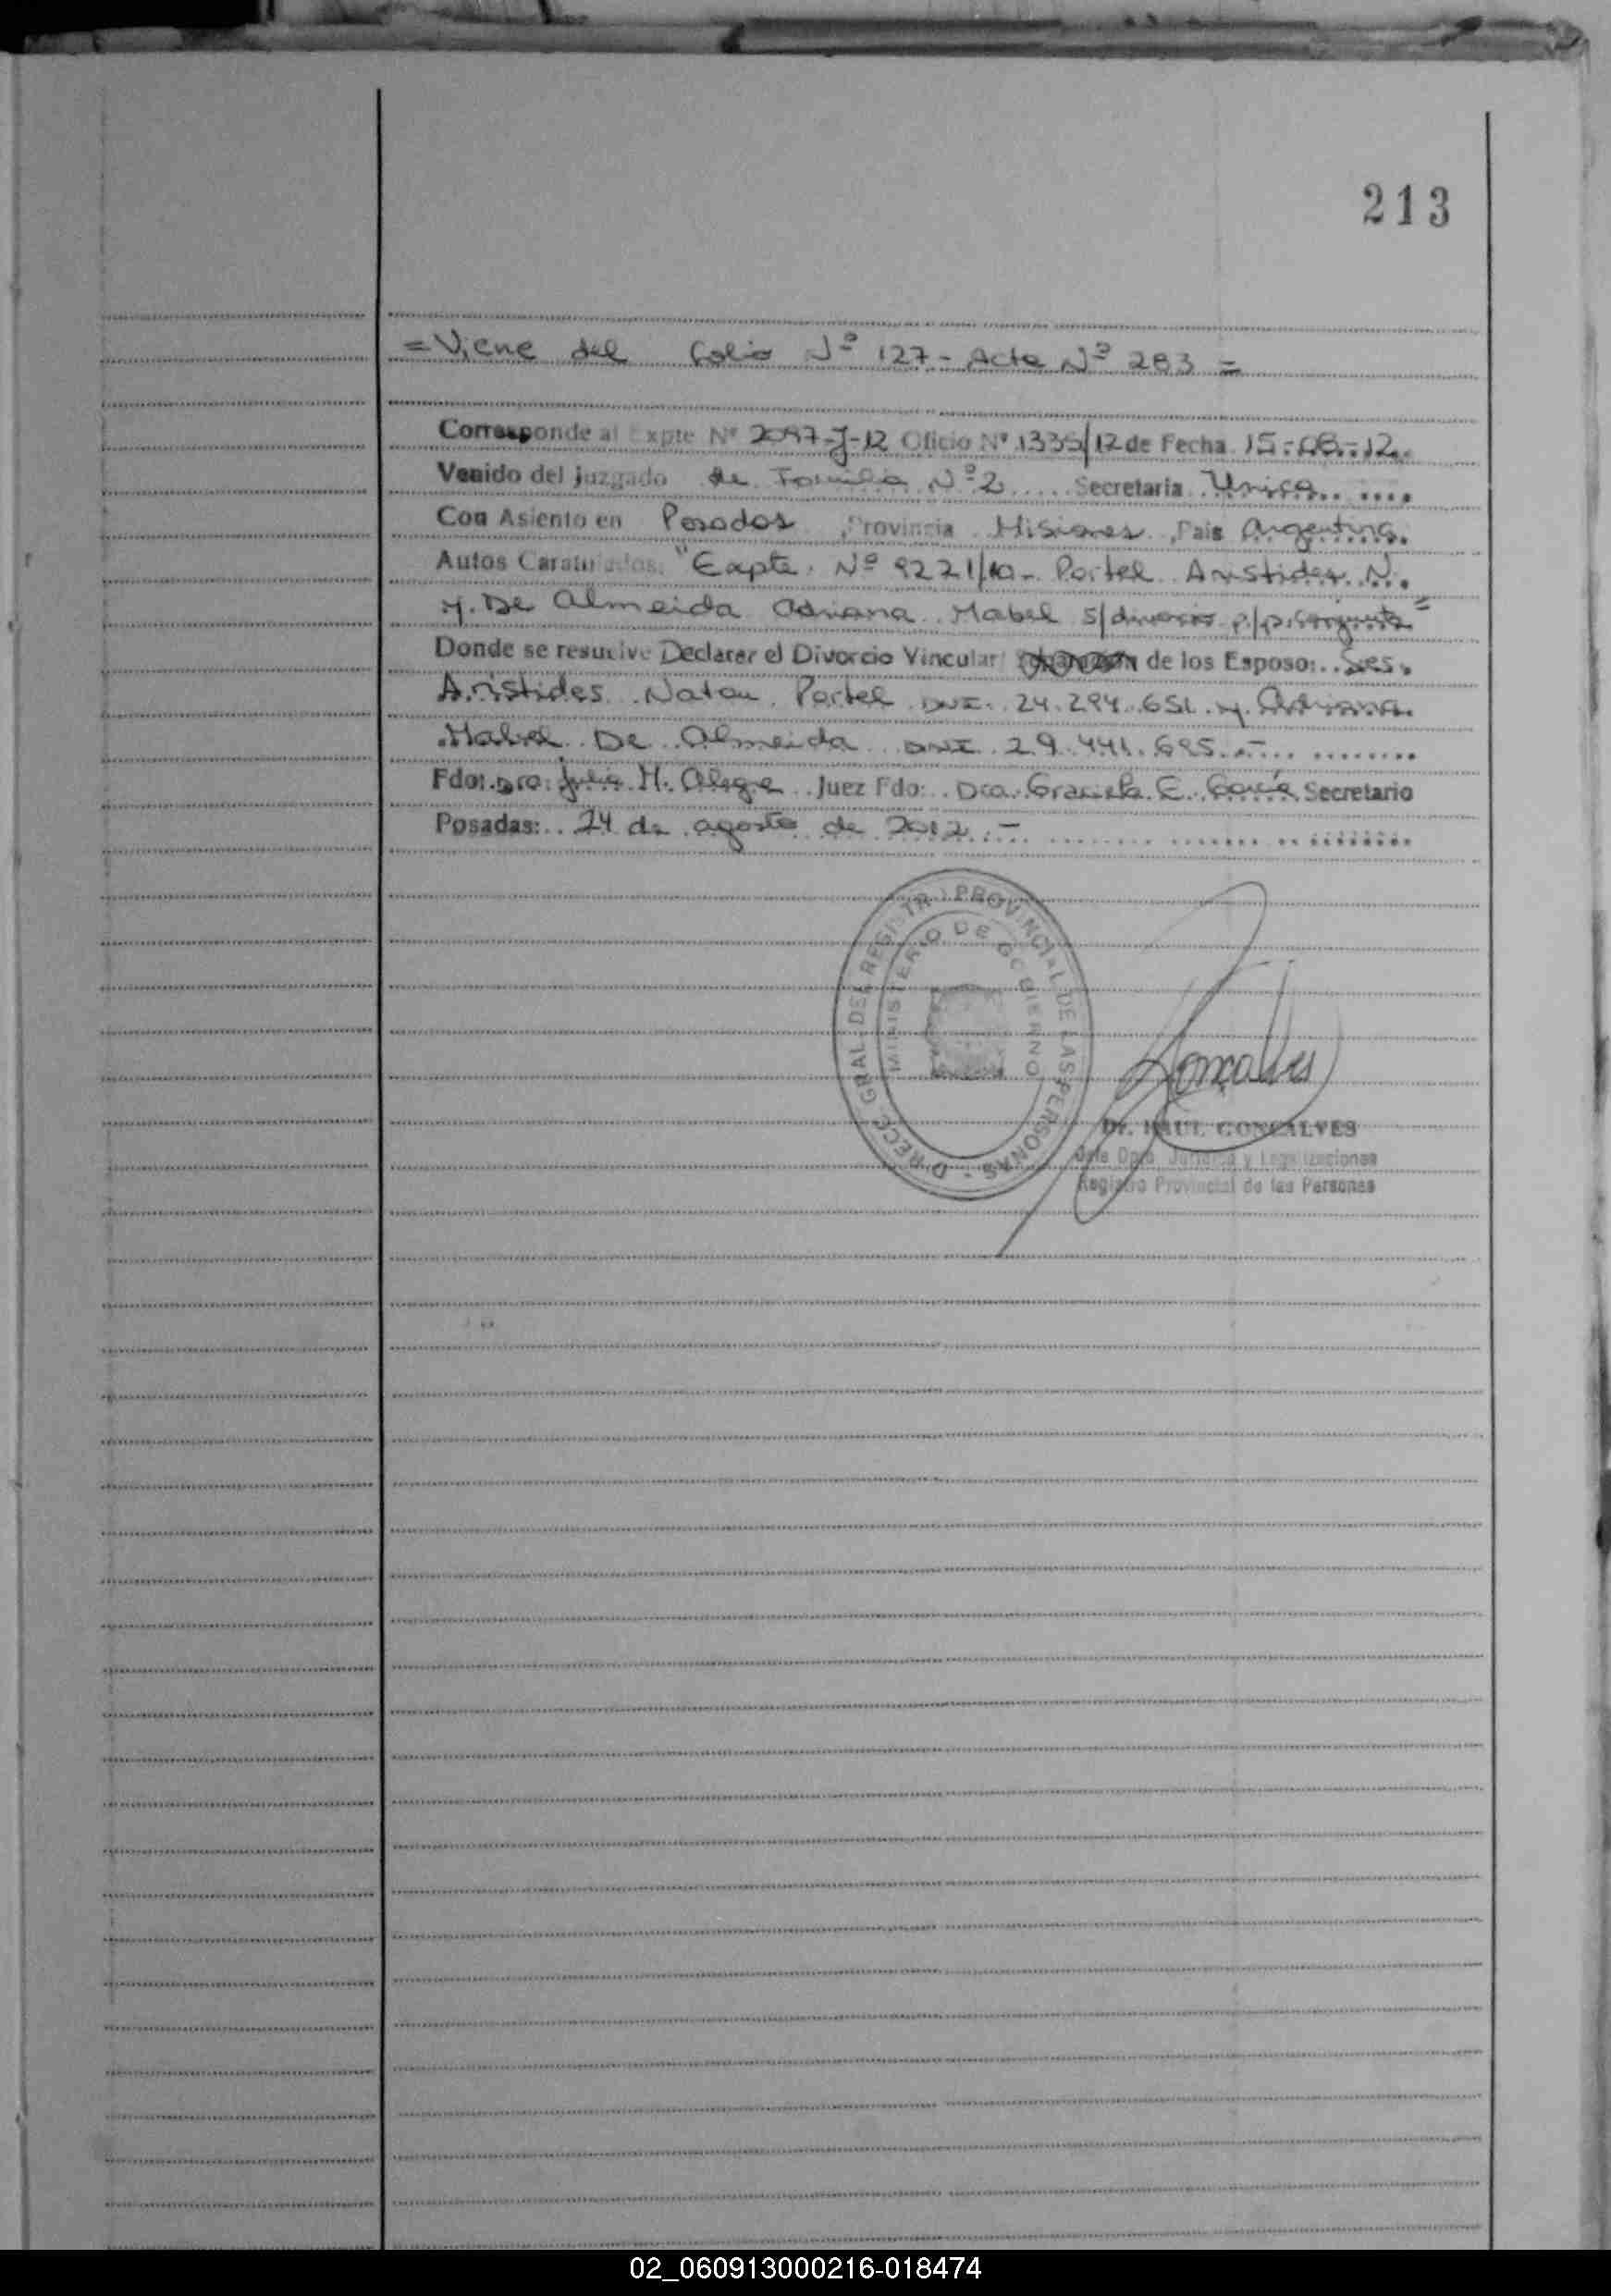 213
= Viene del folio Nº 127 - Acta Nº 283 =
Corresponde al Expte Nº 2097-J-12 Oficio Nº 1335/12 de Fecha 15-08-12.
Venido del Juzgado de Familia Nº 2 Secretaria Unica
Con Asiento en Posadas, Provincia Misiones, Pais Argentina.
Autos Caratulados: "Expte. Nº 9221/10 - Portel Aristides N.
y De Almeida Adriana Mabel s/divorcio p/p. conjunta"
Donde se resuelve Declarar el Divorcio Vincular de los Esposo: Sres.
Aristides Natan Portel DNI. 24.294.651 y Adriana
Mabel De Almeida DNI 29.441.685.-
Fdo: Dra. Julia M. Alegre Juez Fdo: Dra. Graciela E. Secretario
Posadas: 24 de agosto de 2012.-
DIRECC. GRAL. DEL REGISTRO PROVINCIAL DE LAS PERSONAS
MINISTERIO DE GOBIERNO
Goncalves
Dr. RAUL GONCALVES
Jefe Dpto. Juridico y Legalizaciones
Registro Provincial de las Personas
02_060913000216-018474